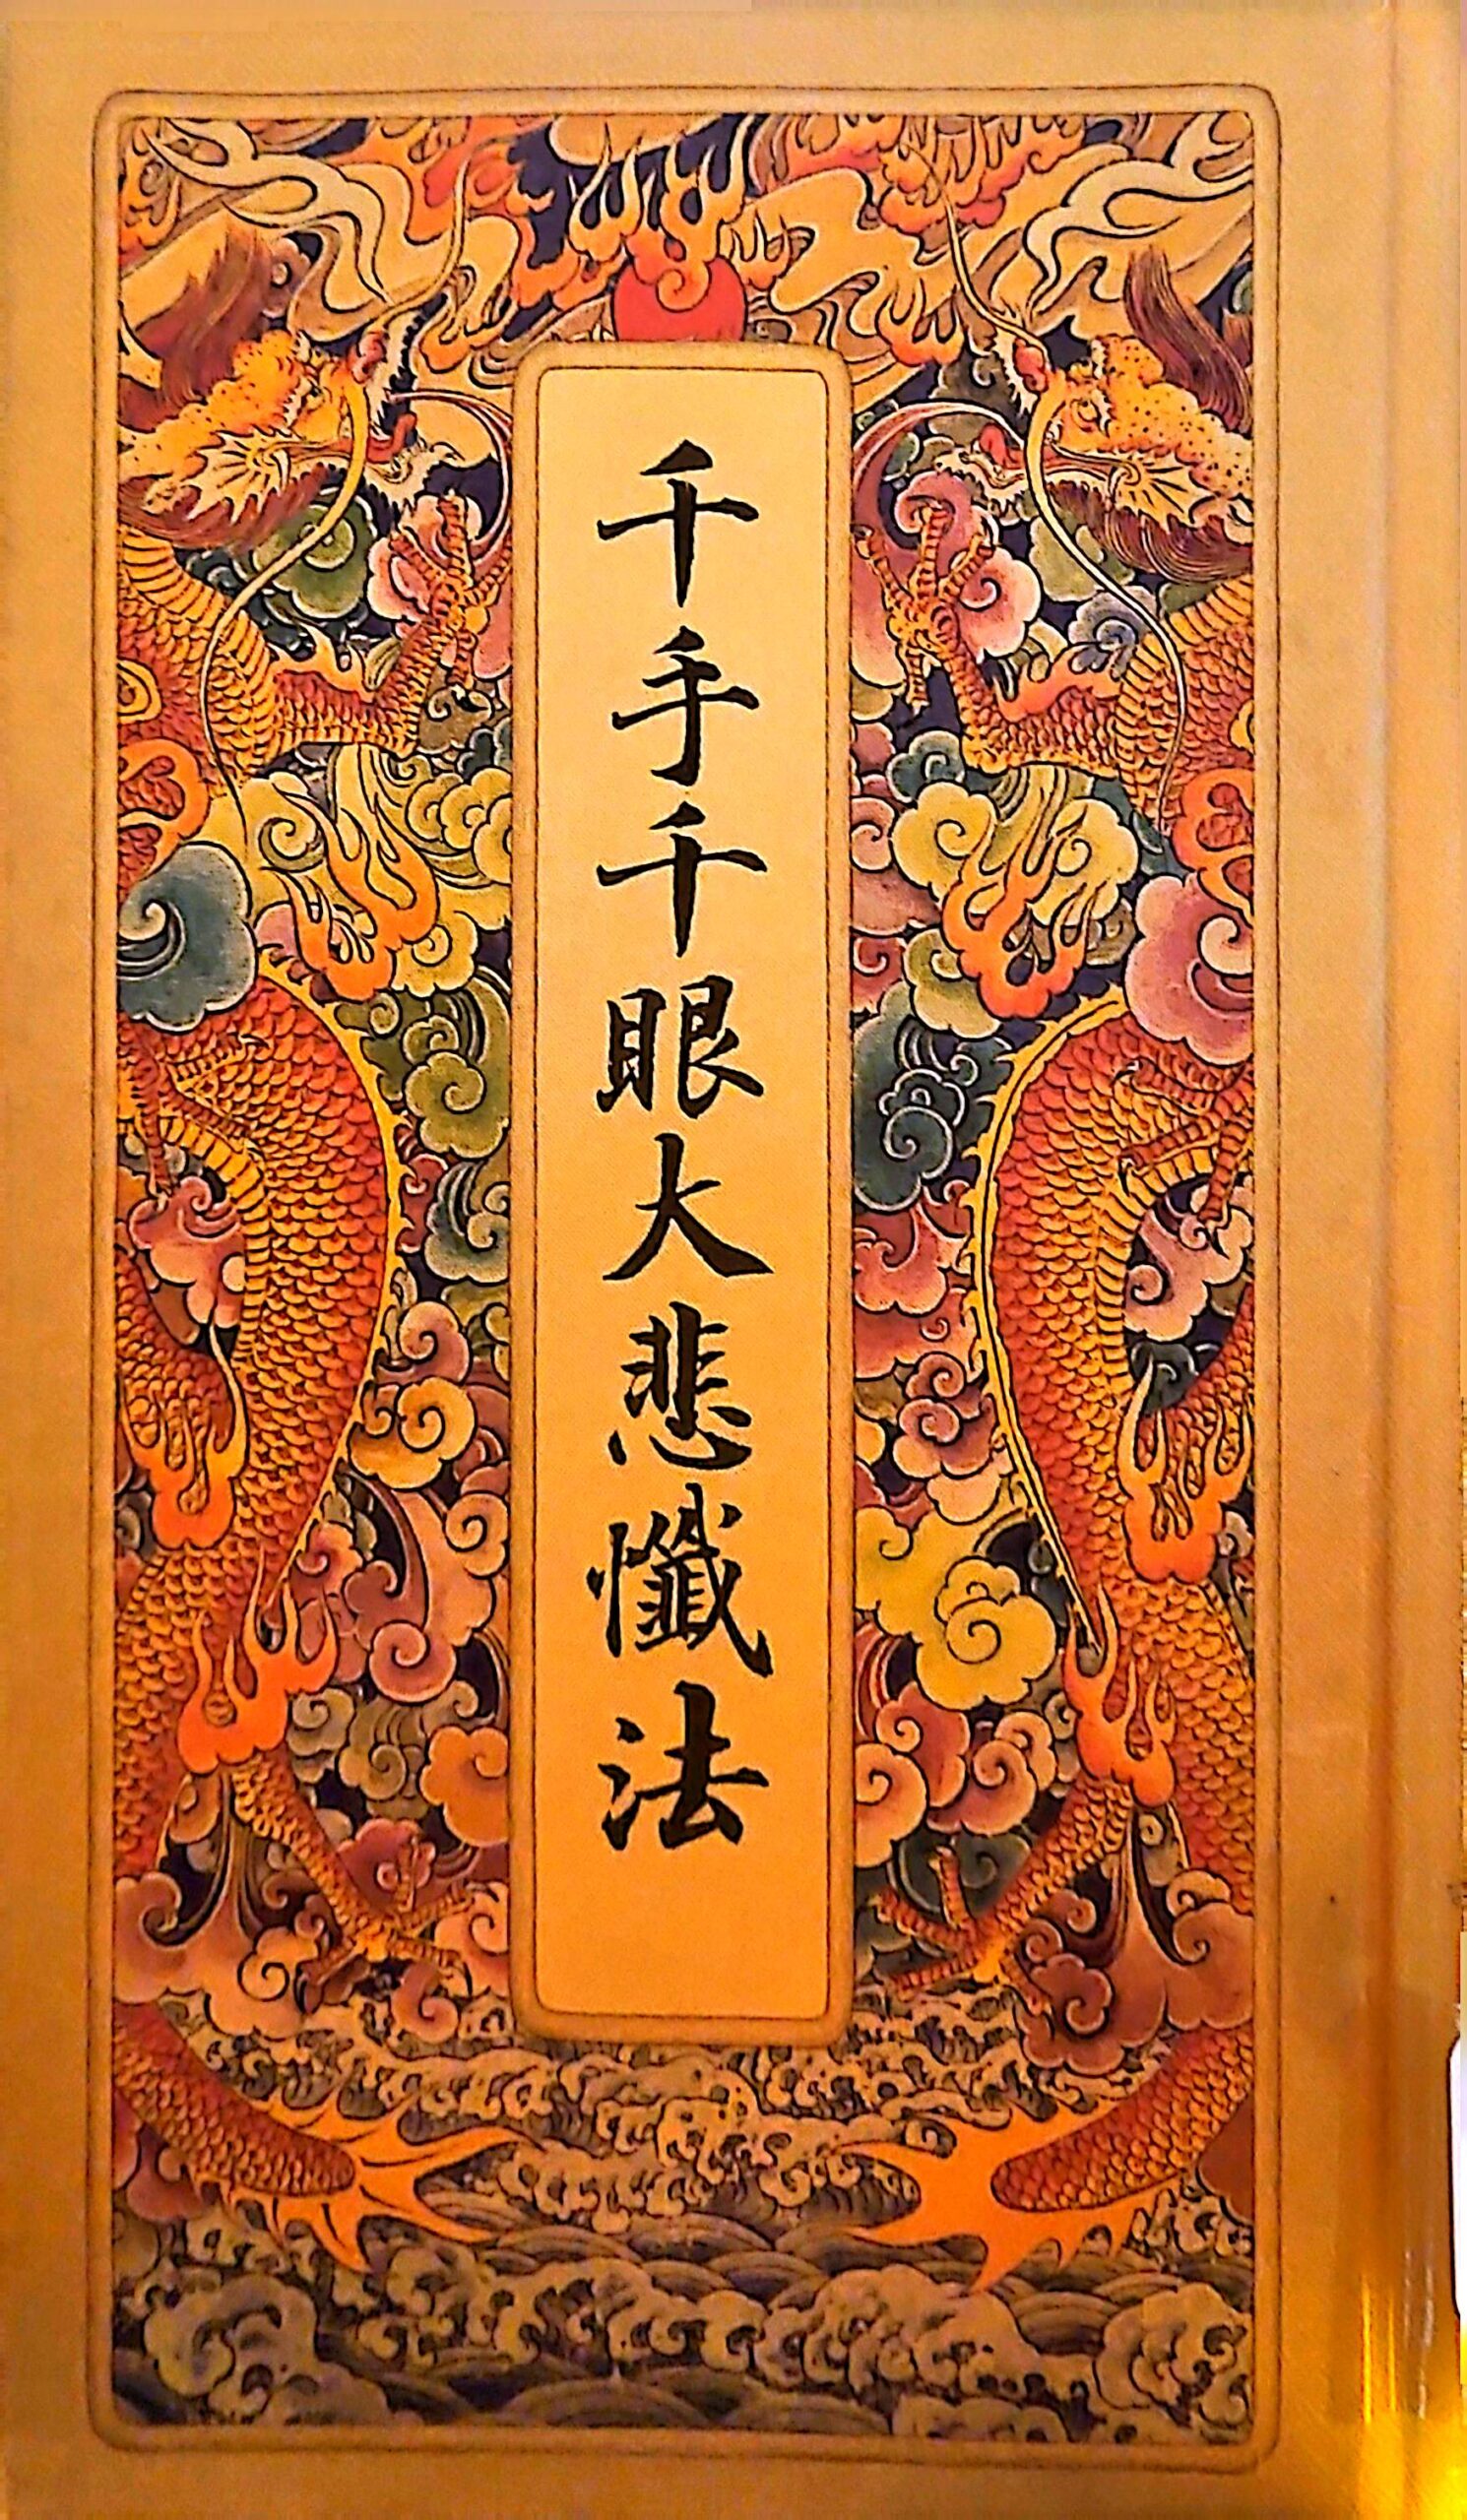 千手千眼大悲懺法